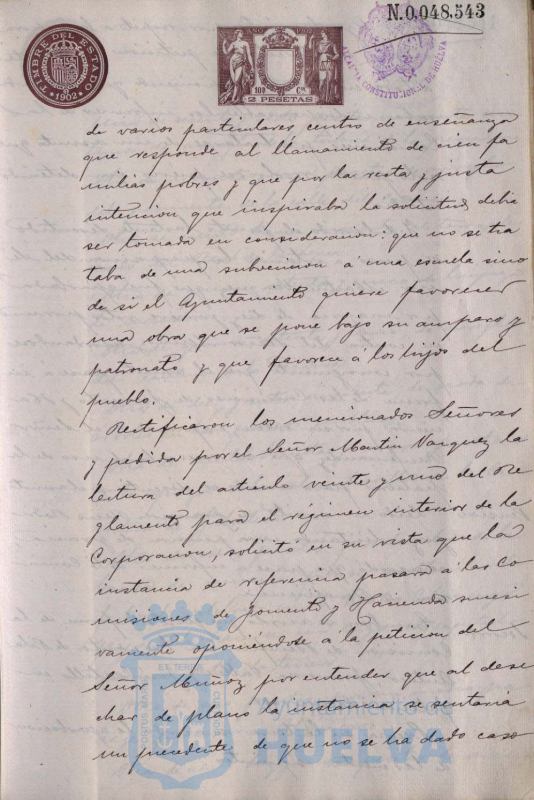 N.0,048,543
TIMBRE DEL ESTADO
1902
100 Cs.
2 PESETAS
ALCALDIA CONSTITUCIONAL DE HUELVA
de varios particulares, centro de enseñanza
que responde al llamamiento de cien fa
milias pobres y que por la recta y justa
intencion que inspiraba la solicitud, debia
ser tomada en consideracion: que no se tra
taba de una subvencion á una escuela sino
de si el Ayuntamiento quiere favorecer
una obra que se pone bajo su amparo y
patronato y que favorece á los hijos del
pueblo.
Rectificaron los mencionados Señores
y pedida por el Señor Martin Vazquez la
lectura del artículo veinte y uno del Re
glamento para el régimen interior de la
Corporacion, solicitó en su vista que la
instancia de referencia pasara á las Co
misiones de Fomento y Hacienda sucesi
vamente oponiéndose á la peticion del
Señor Muñoz por entender que al dese
char de plano la instancia se sentaria
un precedente de que no se ha dado caso
Ayuntamiento de
HUELVA